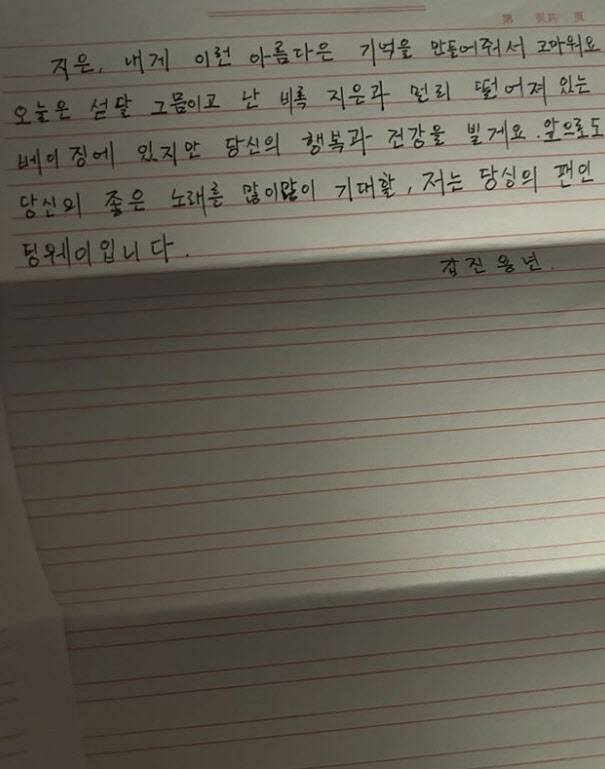 第 页共 页
지은, 내게 이런 아름다은 기억을 만들어줘서 고마워요
오늘은 섣달 그믐이고 난 비록 지은과 먼리 떨어져 있는
베이징에 있지만 당신의 행복과 건강을 빌게요. 앞으로도
당신의 좋은 노래를 많이많이 기대할, 저는 당싱의 팬인
딩웨이입니다.
갑진용년.